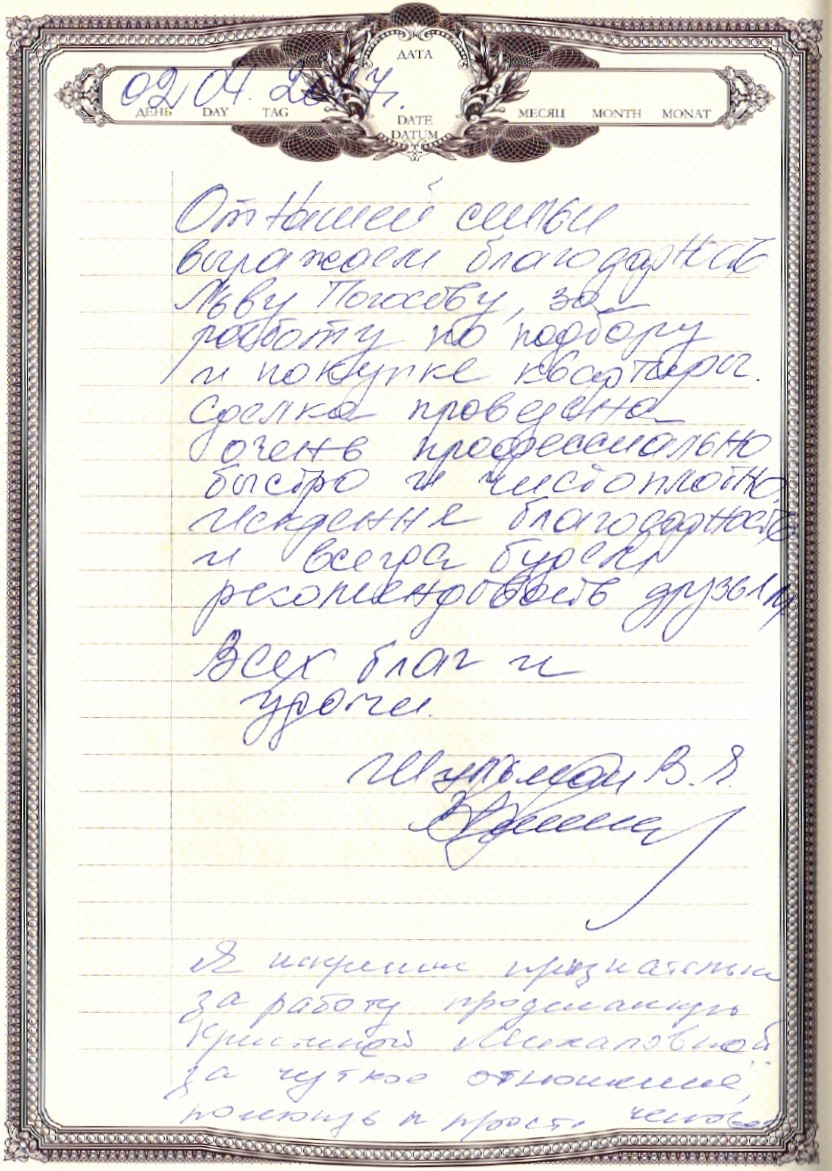 ДАТА
02 04. 2017г.
ДЕНЬ DAY TAG DATE МЕСЯЦ MONTH MONAT
DATUM
От нашей семьи
выражаем благодарность
Льву Погосову, за
работу по подбору
и покупке квартиры.
Сделка проведена
очень профессионально
быстро и чистоплотно,
искренняя благодарность
и всегда будем
рекомендовать друзьям
Всех благ и
удачи.
Шульман В. Я.
Я искренне признательна
за работу проделанную
Кристиной Михайловной
за чуткое отношение,
помощь и просто